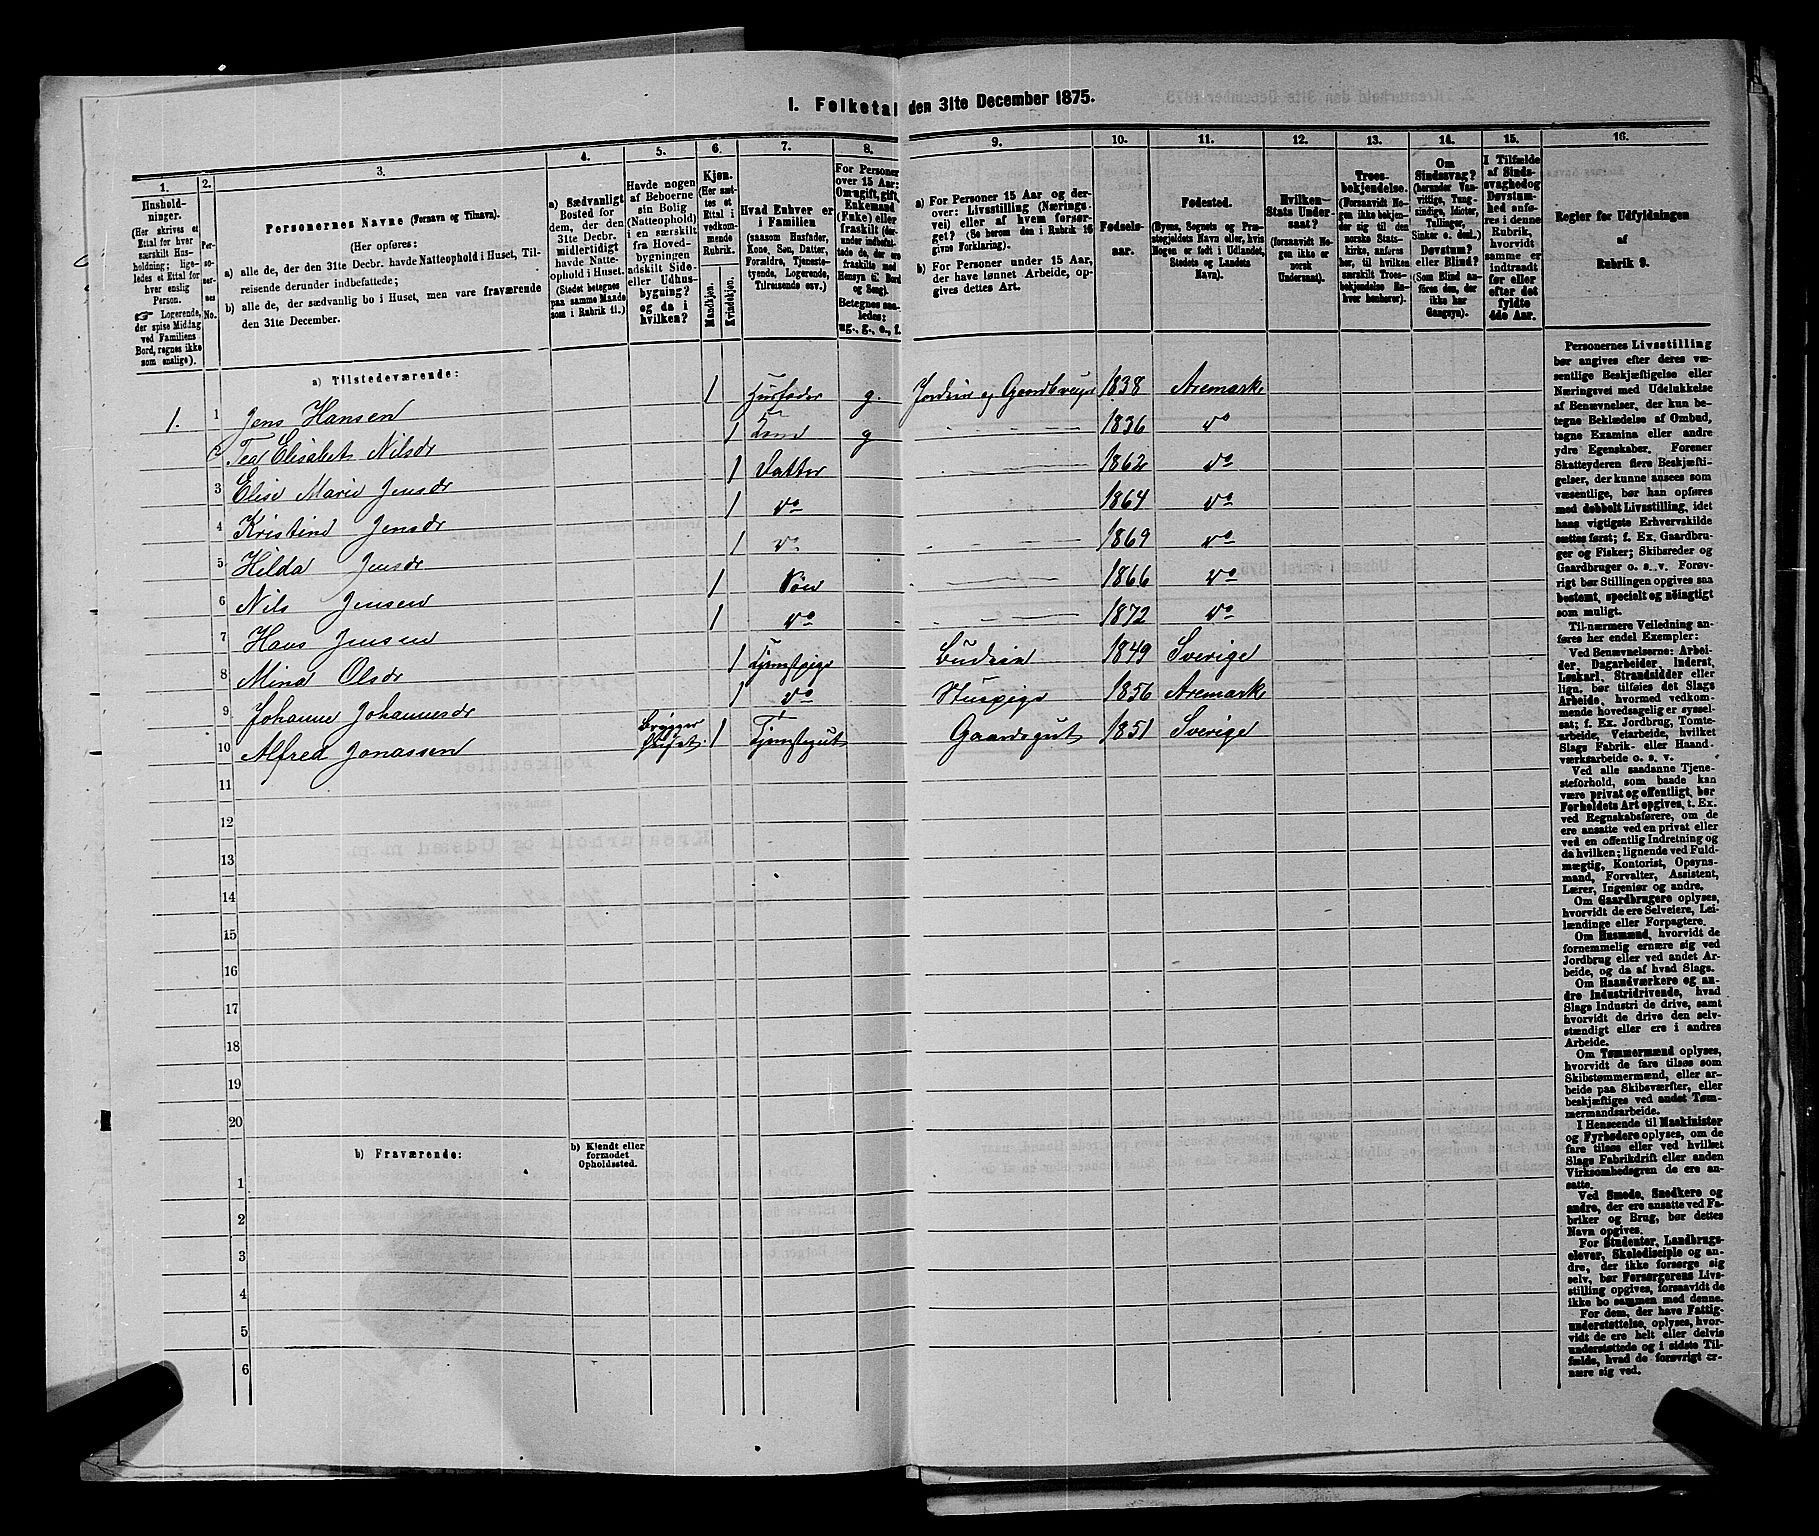 1. Folketal den 31te December 1875.
1. 2. 3. 4. 5. 6. 7. 8. 9. 10. 11. 12. 13. 14. 15. 16.
Husholdninger.
(Her skrives et
Ettal for hver
særskilt Husholdning;
ligeledes et Ettal for
hver enslig
Person.
☞ Logerende,
der spise Middag
ved Familiens
Bord, regnes ikke
som enslige).
Personernes No.
Personernes Navne (Fornavn og Tilnavn).
(Her opføres:
a) alle de, der den 31te Decbr. havde Natteophold i Huset, Tilreisende derunder indbefattede;
b) alle de, der sædvanlig bo i Huset, men vare fraværende
den 31te December.
a) Sædvanligt
Bosted for
dem, der den
31te Decbr.
midlertidigt
havde Natteophold i Huset.
(Stedet betegnes
paa samme Maade
som i Rubrik 11.)
Havde nogen
af Beboerne
sin Bolig
(Natteophold)
i en særskilt
fra Hovedbygningen
adskilt Side-
eller Udhusbygning?
og da
i hvilken?
Kjøn.
(Her sættes et
Ettal i
vedkommende
Rubrik.)
Mandkjøn.
Kvindekjøn.
Hvad Enhver er
i Familien
(saasom Husfader,
Kone, Søn, Datter,
Forældre, Tjenestetyende, Logerende,
Tilreisende osv.)
For Personer
over 15 Aar:
Om ugift, gift,
Enkemand
(Enke) eller
fraskilt
Betegnes saaledes:
ug., g., e., f.
a) For Personer 15 Aar og derover: Livsstilling (Næringsvei) eller af hvem forsørget? (Se herom den i Rubrik 16
givne Forklaring).
b) For Personer under 15 Aar,
der have lønnet Arbeide, opgives dettes Art.
Fødselsaar.
Fødested.
(Byens, Sognets og Præstegjeldets Navn eller, hvis
Nogen er født i Udlandet,
Stedets og Landets
Navn).
Hvilken
Stats Undersaat?
(forsaavidt Nogen ikke er
norsk
Undersaat).
Troesbekjendelse.
(Forsaavidt Nogen ikke bekjender sig til den
norske Statskirke, anføres
her, til hvilken
særskilt Troesbekjendelse Enhver henhører).
Om
Sindssvag?
(herunder Vanvittige, Tungsindige, Idioter,
Tullinger,
Sinker o. desl.)
Døvstum?
eller Blind?
(Som Blind anføres den, der
ikke har
Gangsyn).
I Tilfælde
af Sindssvaghed og
Døvstumhed anføres i denne
Rubrik,
hvorvidt
samme er
indtraadt
før eller
efter det
fyldte
4de Aar.
Regler før Udfyldningen
af
Rubrik 9.
a) Tilstedeværende:
1. 1 Jens Hansen 1 Husfader g. Jordeier og Gaardbruger 1838 Aremark
2 Tea Elisabet Nilsdr 1 Kone g 1836 do
3 Elise Marie Jensdr 1 Datter 1862 do
4 Kristine Jensdr 1 do 1864 do
5 Hilda Jensdr 1 do 1869 do
6 Nils Jensen 1 Søn 1866 do
7 Hans Jensen 1 do 1872 do
8 Mina Olsdr 1 Tjenstpige Budeie 1849 Sverige
9 Johanne Johannesdr 1 do Huspige 1856 Aremark
10 Alfred Jonassen 1 Tjenstegut Gaardsgut 1851 Sverige
11
12
13
14
15
16
17
18
19
20
b) Fraværende:
b) Kjendt eller
formodet
Opholdssted.
1
2
3
4
5
6
Personernes Livsstilling
bør angives efter deres væsentlige Beskjæftigelse eller
Næringsvei med Udelukkelse
af Benævnelser, der kun betegne Beklædelse af Ombud,
tagne Examina eller andre
ydre Egenskaber. Forener
Skatteyderen flere Beskjæftigelser, der kunne ansees som
væsentlige, bør han opføres
med dobbelt Livsstilling, idet
hans vigtigste Erhvervskilde
sættes først; f. Ex. Gaardbruger og Fisker; Skibsreder og
Gaardbruger o. s. v. Forøvrigt bør Stillingen opgives saa
bestemt, specielt og nøiagtigt
som muligt.
Til nærmere Veiledning anføres her endel Exempler:
Ved Benævnelserne: Arbeider, Dagarbeider, Inderst,
Løskarl, Strandsidder eller
lign. bør tilføies det Slags
Arbeide, hvormed vedkommende hovedsagelig er sysselsat; f. Ex. Jordbrug, Tomtearbeide, Veiarbeide, hvilket
Slags Fabrik- eller Haandværksarbeide o. s. v.
Ved alle saadanne Tjenesteforhold, som baade kan
være privat og offentligt, bør
Forholdets Art opgives, t. Ex.
ved Regnskabsførere, om de
ere ansatte ved en privat eller
en offentlig Indretning og
da hvilken; lignende ved Fuldmægtig, Kontorist, Opsynsmand, Forvalter, Assistent,
Lærer, Ingeniør og andre.
Om Gaardbrugere oplyses,
hvorvidt de ere Selveiere, Leilændinge eller Forpagtere.
Om Husmænd, hvorvidt de
fornemmelig ernære sig ved
Jordbrug eller ved andet Arbeide, og da af hvad Slags.
Om Haandværkere og andre Industridrivende, hvad
Slags Industri de drive, samt
hvorvidt de drive den selvstændigt eller ere i andres
Arbeide.
Om Tømmermænd oplyses,
hvorvidt de fare tilsøs som
Skibstømmermænd, eller arbeide paa Skibsværfter, eller
beskjæftiges ved andet Tømmermandsarbeide.
I Henseende til Maskinister
og Fyrbødere oplyses, om de
fare tilsøs eller ved hvilket
Slags Fabrikdrift eller anden
Virksomhedsgren de ere ansatte.
Ved Smede, Snedkere og
andre, der ere ansatte ved Fabriker og Brug, bør dettes
Navn opgives.
For Studenter, Landbrugselever, Skoledisciple og andre, der ikke forsørge sig
selv, bør Forsørgerens Livsstilling opgives, forsaavidt de
ikke bo sammen med denne.
For dem, der have Fattigunderstøttelse, oplyses, hvorvidt de ere helt eller delvis
understøttede og i sidste Tilfælde, hvad de forøvrigt ernære sig ved.